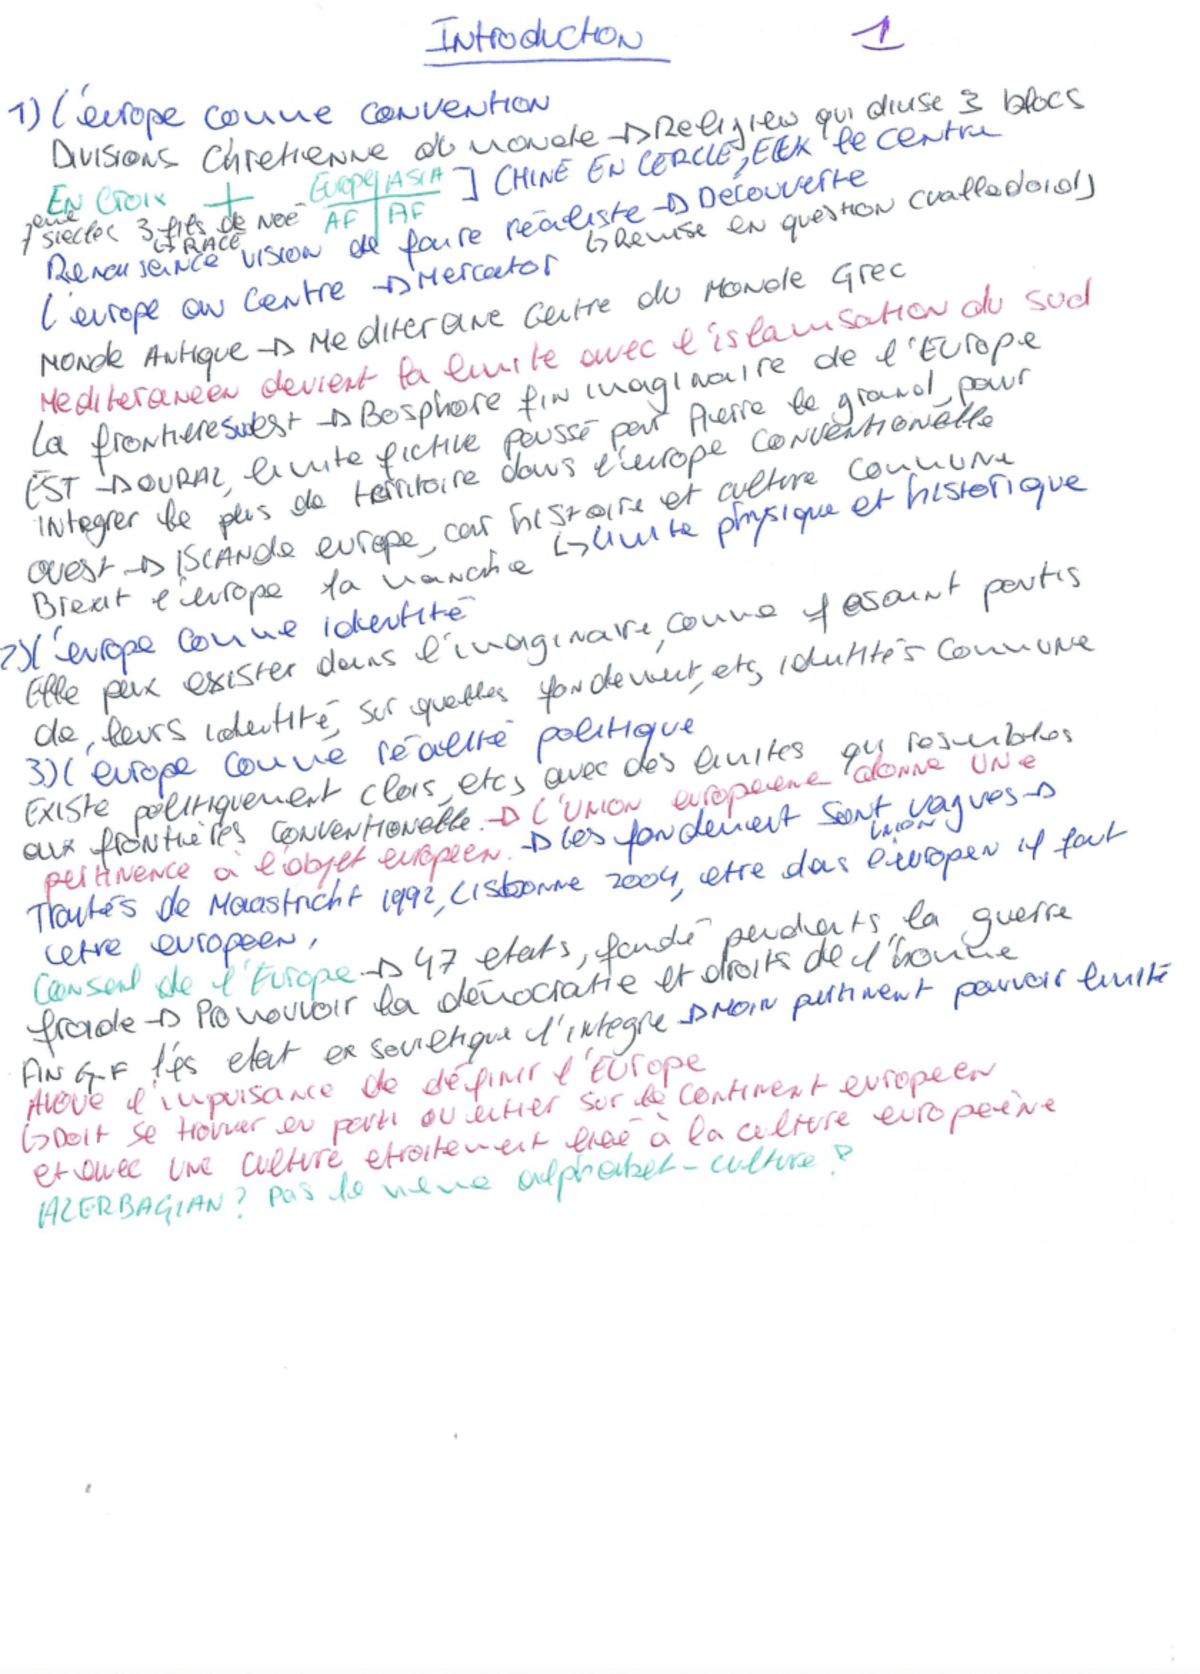 Introduction 1
1) L'europe comme convention
Divisions Chretienne du monde → Religieu qui divise 3 blocs
En Croix + Europe ASIA AF AF ] CHINE EN CERCLE, le centre
7 eme siecle 3 fils de Noé
↳ RACE
Renaiseince vision de faire réaliste → Découverte
↳ Remise en question (valladoid)
L'europe au Centre → Mercator
Monde Antique → Mediterane Centre du Monde Grec
Mediteraneen devient la limite avec l'islamisation du sud
La frontiere sudest → Bosphore fin imaginaire de l'Europe
EST → OURAL, limite fictive poussé par Pierre le grand, pour
integrer le plus de territoire dans l'europe conventionelle
ouest → iSCANde europe, car histoire et culture commune
Brexit l'europe la manche ↳ limite physique et historique
2) L'europe comme identité
Elle peux exister dans l'imaginaire, comme faisaint partis
de, leurs identité, sur quelles fondement, etc, identités commune
3) L'europe comme réalité politique
Existe politiquement clais, etcs avec des limites qu resembles
aux frontières conventionelle. → L'union europeene donne une
pertinence à l'objet européen. → Les fondement sont vagues →
Traités de Maastricht 1992, Lisbonne 2004, etre das l'union européen il faut
cetre europeen,
Conseil de l'Europe → 47 etats, fondé pendants la guerre
froide → Promouvoir la démocratie et droits de l'homme
Fin G.F l'és etat ex sovietique l'integre → Moin pertinent pouvoir limité
Avoue l'impuisance de définir l'Europe
↳ Doit se trouver en parti ou entier sur le continent europeen
et avec une culture etroitement lieé à la culture européène
AZERBAGIAN ? Pas le meme alphabet - culture ?